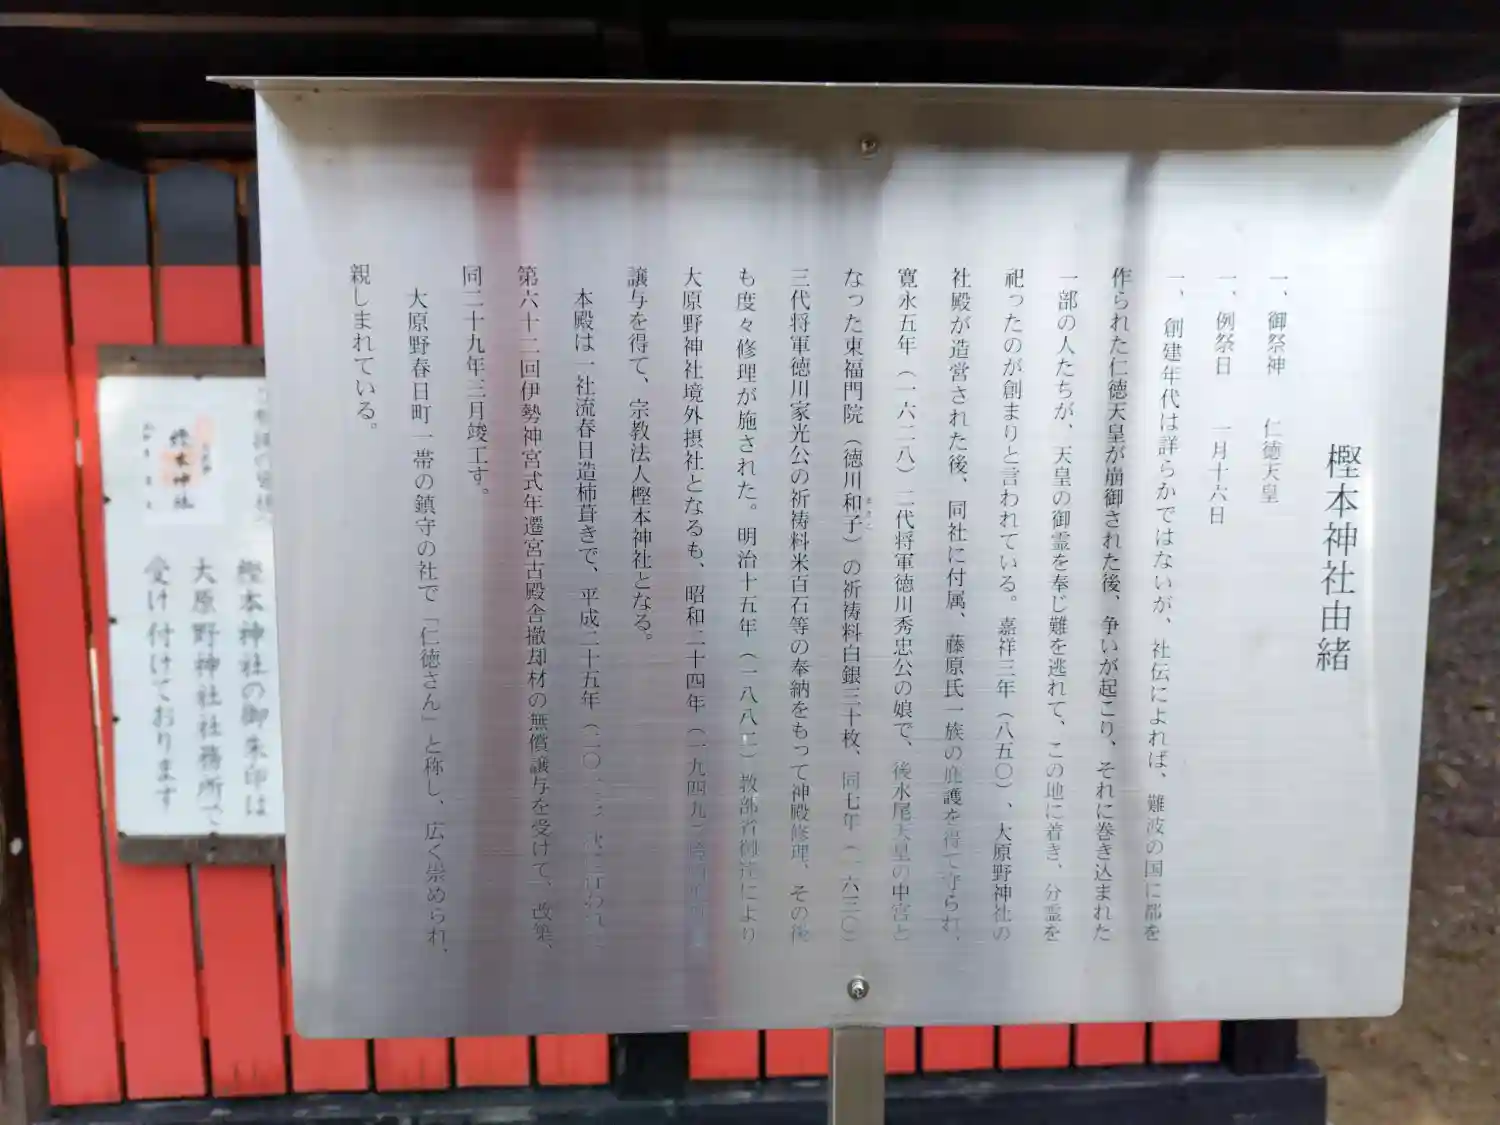 樫本神社由緒
一、御祭神　仁徳天皇
一、例祭日　一月十六日
一、創建年代は詳らかではないが、社伝によれば、難波の国に都を
作られた仁徳天皇が崩御された後、争いが起こり、それに巻き込まれた
一部の人たちが、天皇の御霊を奉じ難を逃れて、この地に着き、分霊を
祀ったのが創まりと言われている。嘉祥三年（八五〇）、大原野神社の
社殿が造営された後、同社に付属、藤原氏一族の庇護を得て守られ、
寛永五年（一六二八）二代将軍徳川秀忠公の娘で、後水尾天皇の中宮と
なった東福門院（徳川和子）の祈祷料白銀三十枚、同七年（一六三〇）
三代将軍徳川家光公の祈祷料米百石等の奉納をもって神殿修理、その後
も度々修理が施された。明治十五年（一八八二）教部省御達により
大原野神社境外摂社となるも、昭和二十四年（一九四九）
譲与を得て、宗教法人樫本神社となる。
本殿は一社流春日造柿葺きで、平成二十五年（二〇一三）
第六十二回伊勢神宮式年遷宮古殿舎撤却材の無償譲与を受けて、改築、
同二十九年三月竣工す。
大原野春日町一帯の鎮守の社で「仁徳さん」と称し、広く崇められ、
親しまれている。
樫本神社
樫本神社の御朱印は
大原野神社社務所で
受け付けております